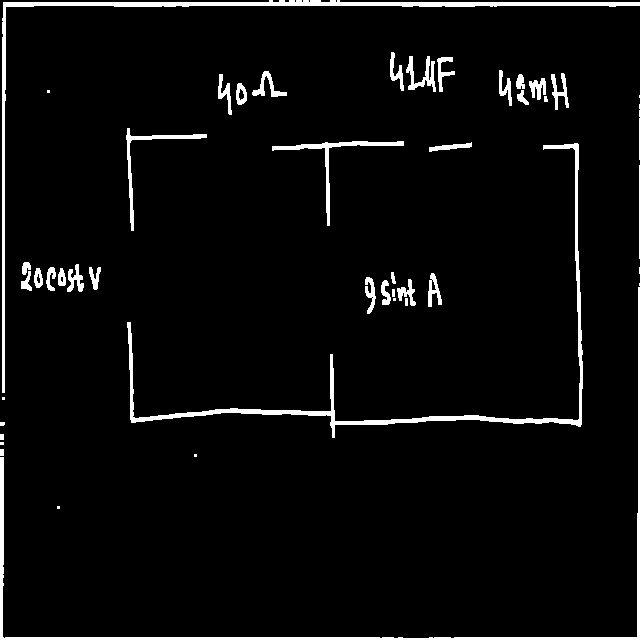 40Ω
41µF
42mH
20cost V
9sint A